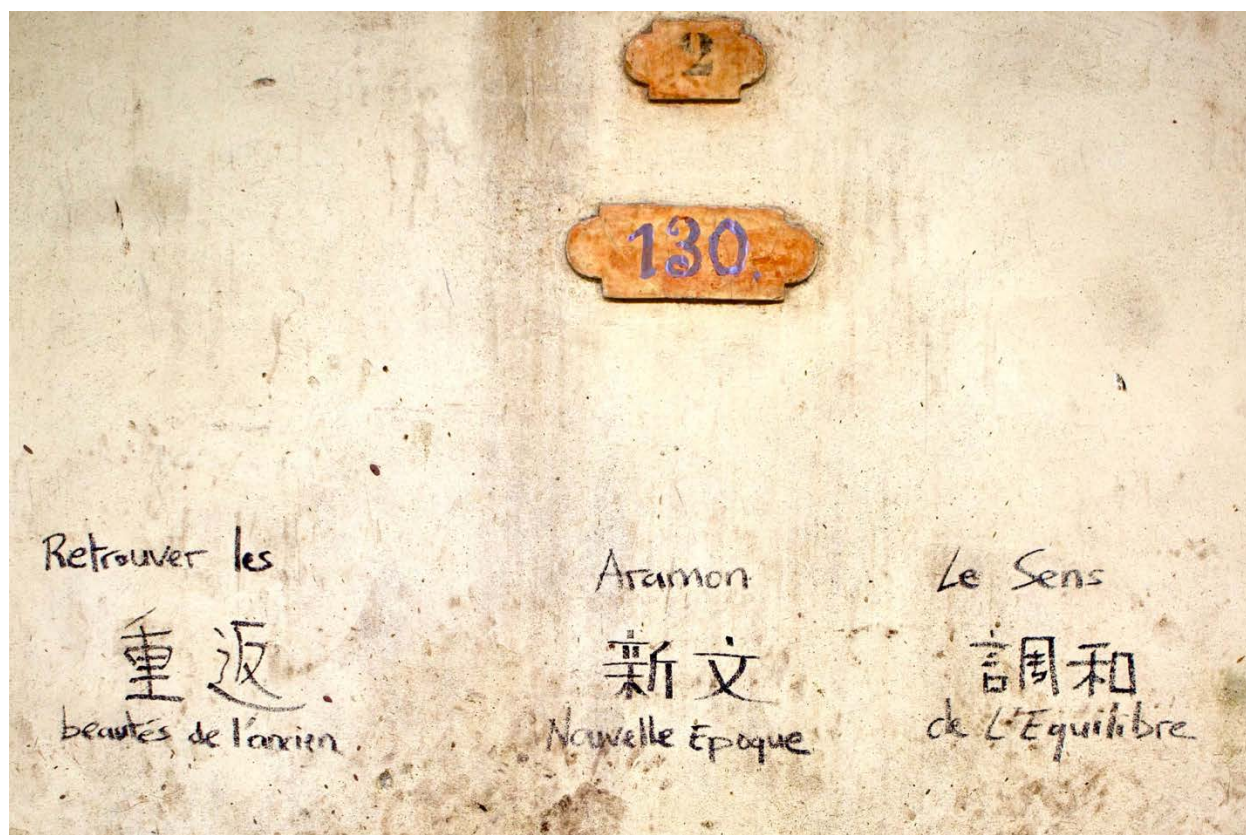 2
130.
Retrouver les
重返
beautés de l'ancien
Aramon
新文
Nouvelle Epoque
Le Sens
調和
de L'Equilibre